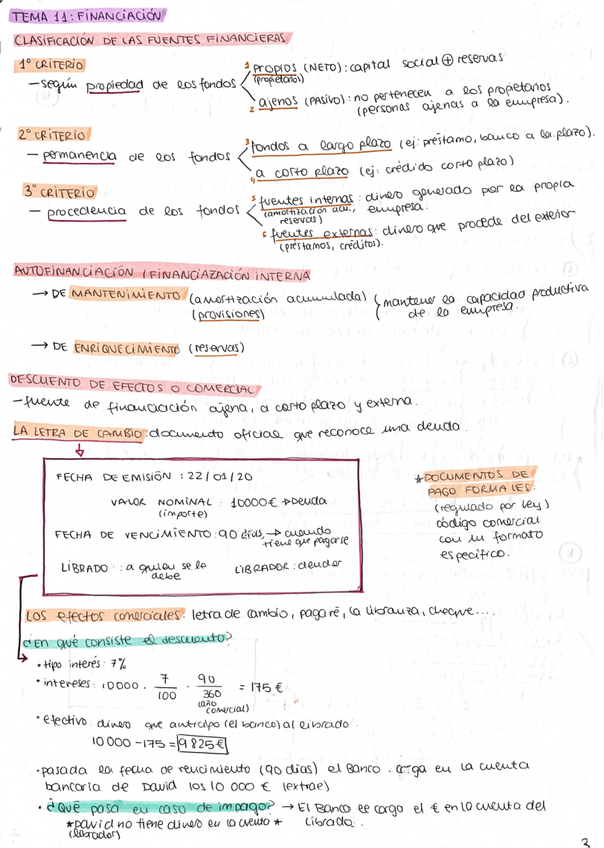 TEMA 11: FINANCIACIÓN
CLASIFICACIÓN DE LAS FUENTES FINANCIERAS
1º CRITERIO
- según propiedad de los fondos
1 propios (NETO): capital social ⊕ reservas
(propietarios)
2 ajenos (PASIVO): no pertenecen a los propietarios
(personas ajenas a la empresa).
2º CRITERIO
- permanencia de los fondos
3 fondos a largo plazo (ej: préstamo, banco a la plazo).
4 a corto plazo (ej: crédido corto plazo)
3º CRITERIO
- procedencia de los fondos
5 fuentes internas: dinero generado por la propia
(amortización acu., reservas) empresa.
6 fuentes externas: dinero que procede del exterior
(préstamos, créditos).
AUTOFINANCIACIÓN / FINANCIAZACIÓN INTERNA
→ DE MANTENIMIENTO (amortización acumulada) { mantener la capacidad productiva
(provisiones) de la empresa.
→ DE ENRIQUECIMIENTO (reservas)
DESCUENTO DE EFECTOS O COMERCIAL
- fuente de financiación ajena, a corto plazo y externa.
LA LETRA DE CAMBIO: documento oficial que reconoce una deuda.
FECHA DE EMISIÓN : 22/01/20
VALOR NOMINAL : 10000€ → Deuda
(importe)
FECHA DE VENCIMIENTO: 90 días → cuando
tiene que pagarse
LIBRADO : a quien se lo debe
LIBRADOR: deudor
* DOCUMENTOS DE
PAGO FORMALES:
(regulado por ley)
código comercial
con un formato
específico.
LOS efectos comerciales: letra de cambio, pagaré, la libranza, cheque....
¿En qué consiste el descuento?
• tipo interés: 7%
• intereses: 10000 · 7/100 · 90/360 = 175 €
(año comercial)
• efectivo: dinero que anticipa (el banco) al librado
10 000 - 175 = 9825€
• pasada la fecha de vencimiento (90 días) el Banco carga en la cuenta
bancaria de David los 10 000 € (extrae)
• ¿Qué pasa en caso de impago? → El Banco se carga el € en la cuenta del
librado.
* David no tiene dinero en la cuenta *
(librador)
3